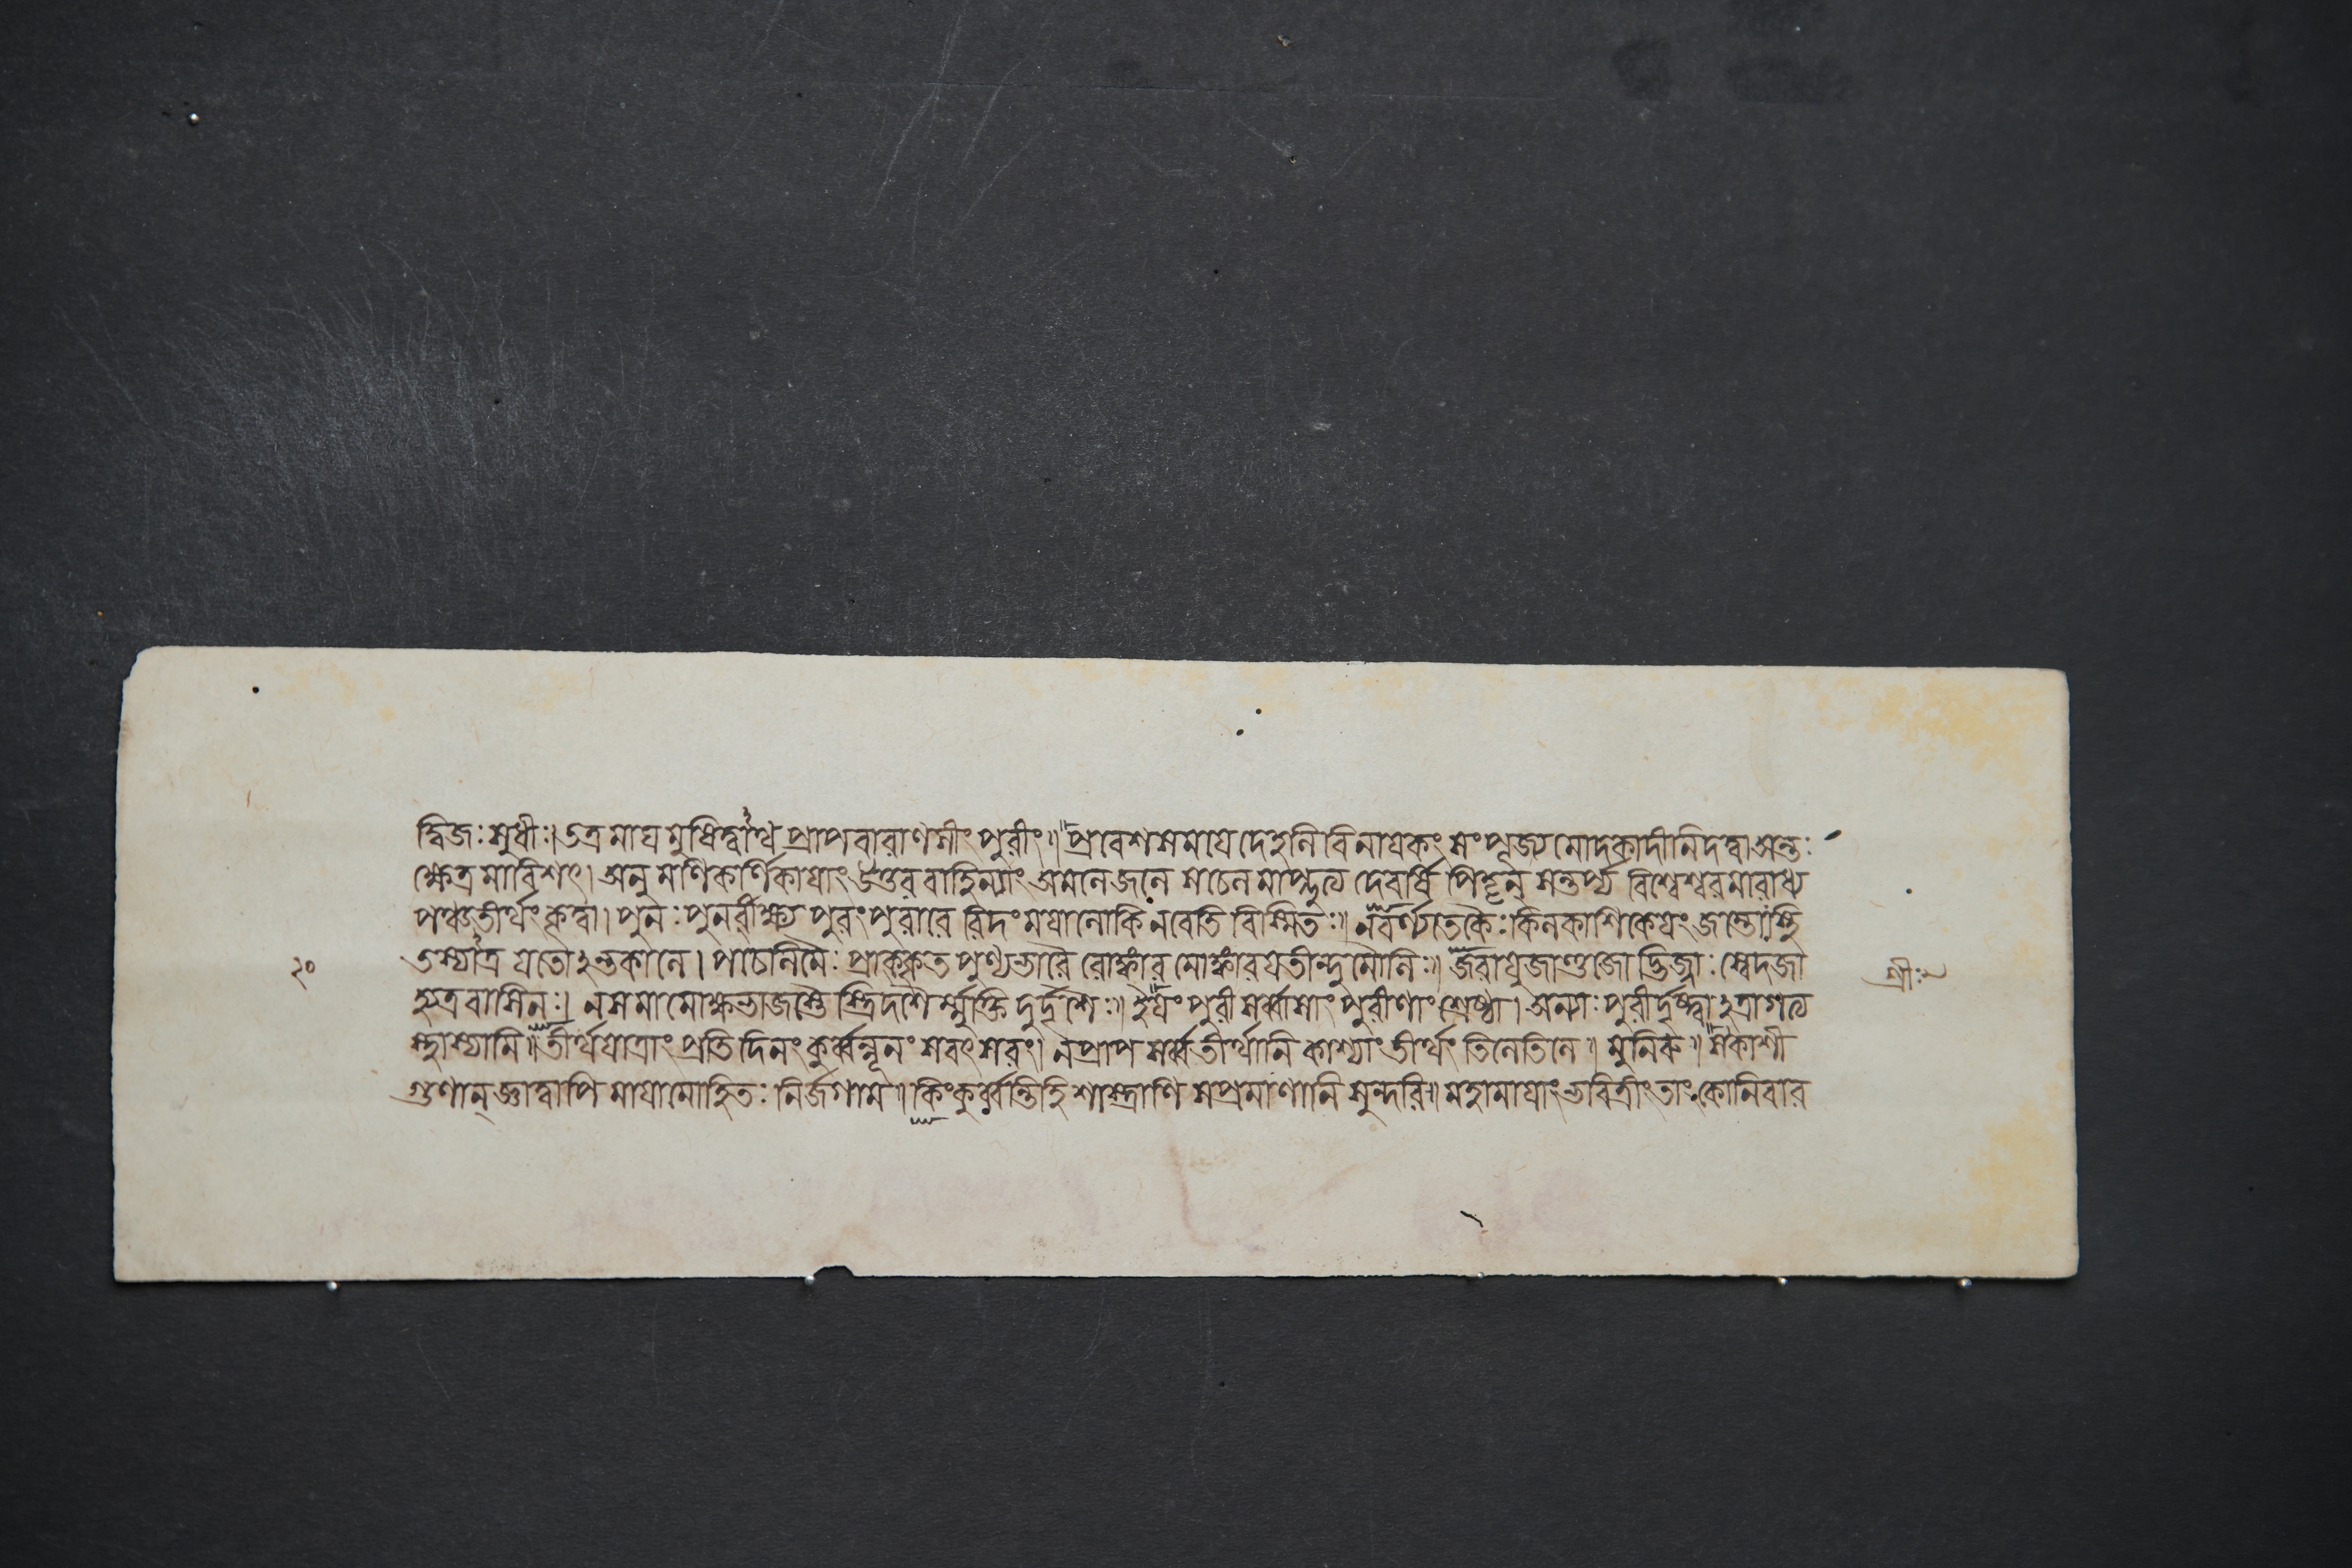 দ্বিজঃ সুধীঃ। তত্র মাঘমুষিত্বাথ প্রাপ বারাণসীং পুরীং॥ প্রবেশসময়ে দেহলিবিনায়কং সংপূজ্য মোদকাদীনি দত্বা অন্তঃ
ক্ষেত্রমাবিশৎ। অনু মণিকর্ণিকায়াং উত্তরবাহিন্যাং অমলে জলে সচেলমাপ্লুত্য দেবর্ষি পিতৄন্ সন্তর্প্য বিশ্বেশ্বরমারাধ্য
পঞ্চতীর্থং কৃত্বা। পুনঃ পুনর্বীক্ষ্য পুরং পুরারে রিদং ময়ালোকি নবেতি বিস্মিতঃ॥ নবর্ণ্যতে কৈঃ কিল কাশিকেয়ং জন্তোঃ স্থি
তস্যাত্র যতোঽন্তকালে। পচেলিমৈঃ প্রাক্কৃত পুণ্যভারৈ রোঙ্কার মোঙ্কারযতীন্দুমৌলিঃ॥ জরায়ুজাণ্ডজোদ্ভিজ্জাঃ স্বেদজা
হ্যত্রবাসিনঃ। নসমা মোক্ষভাজস্তৈ স্ত্রিদশৈ র্ম্মুক্তি দুর্দ্দশৈঃ॥ ইয়ং পুরী সর্ব্বাসাং পুরীণাং শ্রেষ্ঠা। অন্যাঃ পুরীর্দৃষ্ট্বাঽত্রাগত্য
স্থাস্যামি॥ তীর্থযাত্রাং প্রতিদিনং কুর্ব্বন্নূনং সবৎসরং। নপ্রাপ সর্ব্বতীর্থানি কাশ্যাং তীর্থং তিলেতিলে॥ মুনিরু॥ সকাশী
গুণান্ জ্ঞাত্বাপি মায়ামোহিতঃ নির্জগাম॥ কিং কুর্ব্বন্তি হি শাস্ত্রাণি সপ্রমাণানি সুন্দরি॥ মহামায়াং ভবিত্রীং তাং কো নিবার
২০
শ্রীঃ